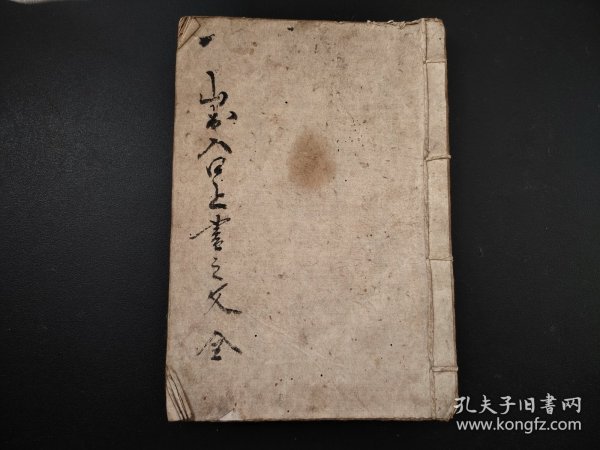 山出入口上書之文 全
孔夫子旧書网
www.kongfz.com